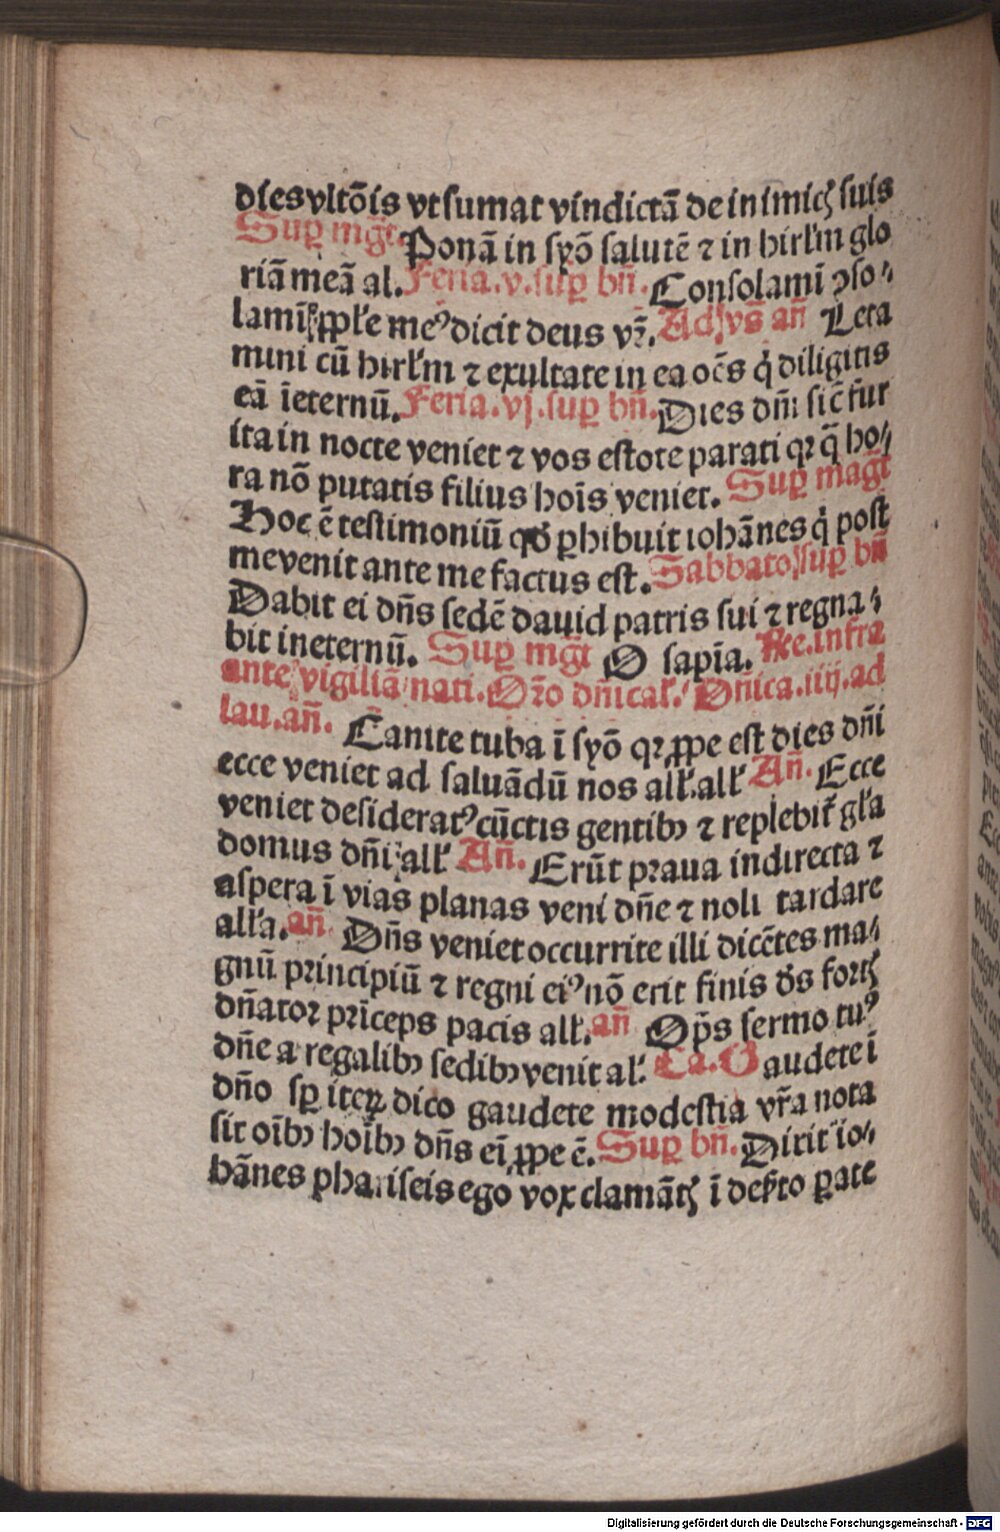 dies vltōis vt sumat vindictā de inimicꝭ suis
Suꝑ mg̅t. Ponā in syō salutē ⁊ in hirłm glo
riā meā al. Feria .v. suꝑ bn̄. Consolamī ꝯso⸗
lamī ꝓple meꝰ dicit deus vr̄. Ad vs̄ an̄ Leta
mini cū hirłm ⁊ exultate in ea oēs q̇ diligitis
eā ieternū. Feria .vj. suꝑ bn̄. Dies dn̄i sic̄ fur
ita in nocte veniet ⁊ vos estote parati qꝛ q̄ ho⸗
ra nō putatis filius hoīs veniet. Suꝑ mag̅t
Hoc ē testimoniū qđ ꝑhibuit iohānes q̇ post
me venit ante me factus est. Sabbato suꝑ bn̄
Dabit ei dn̄s sedē dauid patris sui ⁊ regna⸗
bit ineternū. Suꝑ mg̅t O sapīa. Re. infra
ante vigiliā nati. Oꝛo dn̄ical. Dn̄ica .iiij. ad
lau. an̄. Canite tuba ī syō qꝛ ꝓpe est dies dn̄i
ecce veniet ad saluādū nos all' all' An̄. Ecce
veniet desideratꝰ cūctis gentibꝫ ⁊ replebit̄ gła
domus dn̄i all' An̄. Erūt pꝛaua indirecta ⁊
aspera ī vias planas veni dn̄e ⁊ noli tardare
alła. an̄ Dn̄s veniet occurrite illi dicētes ma⸗
gnū principiū ⁊ regni eiꝰ nō erit finis ds̄ fortꝭ
dn̄atoꝛ pꝛīceps pacis all'. an̄ Op̄s sermo tuꝰ
dn̄e a regalibꝫ sedibꝫ venit al'. Ca. Gaudete ī
dn̄o sꝑ iteꝝ dico gaudete modestia vr̄a nota
sit oībꝫ hoībꝫ dn̄s eī ꝓpe ē. Suꝑ bn̄. Dixit io⸗
hānes phariseis ego vox clamātꝭ ī deẜto ꝑate
Digitalisierung gefördert durch die Deutsche Forschungsgemeinschaft - DFG